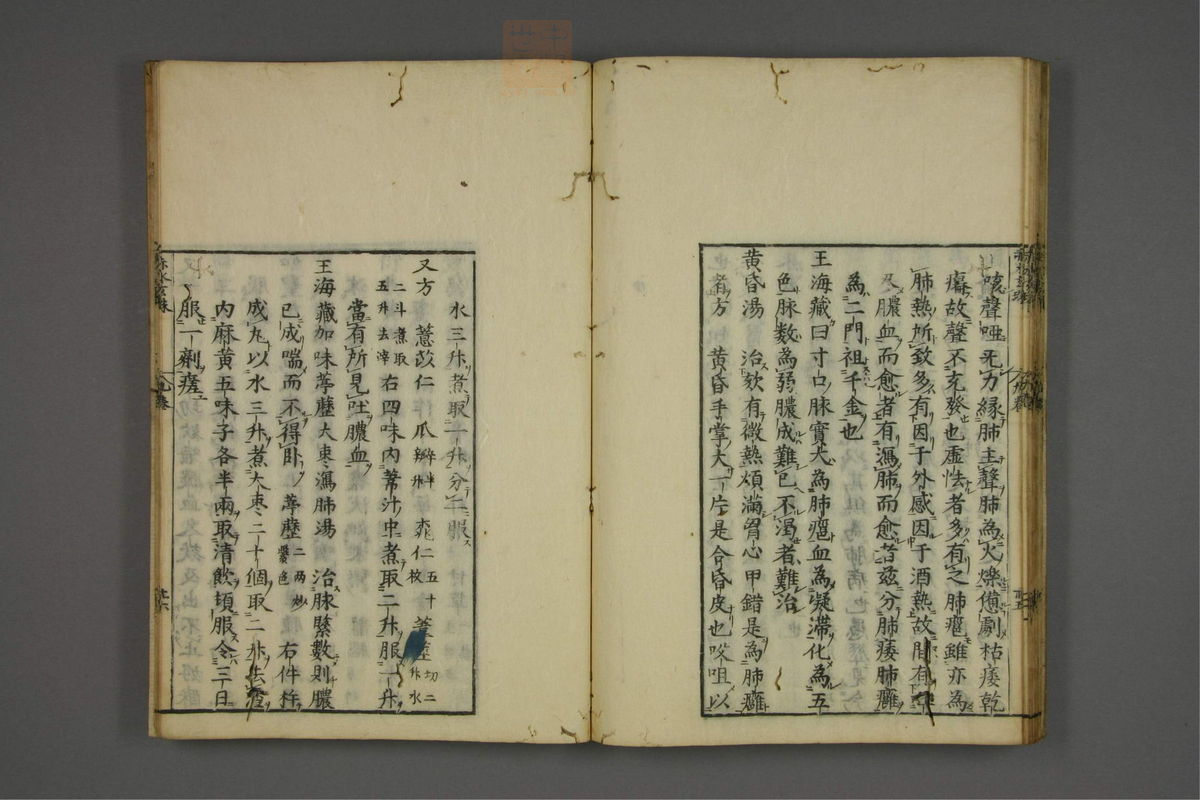 咳聲啞无力緣肺主聲肺為火爍憊劇枯痿乾
癟故聲不充發也虛怯者多有之肺癰雖亦為
肺熱所致多有因于外感因于酒熱故間有
膿血而愈者有瀉肺而愈者茲分肺痿肺癰
為二門祖千金也
王海藏曰寸口脉實大為肺癰血為凝滯化為五
色脉數為弱膿成難已不渴者難治
黃昏湯 治欬有微熱煩滿胷心甲錯是為肺癰
者方 黃昏手掌大一片是合昏皮也㕮咀以
水三升煮取一升分二服
又方 薏苡仁 瓜瓣半升 桃仁五十枚 葦莖切二升水
二斗煮取五升去滓 右四味內葦汁中煮取二升服一升
當有所見吐膿血
王海藏加味葶藶大棗瀉肺湯 治脉緊數則膿
已成喘而不得卧 葶藶二兩炒紫色 右件杵
成丸以水三升煮大棗二十個取二升去渣
內麻黃五味子各半兩取清飲頓服令三日
服一劑瘥
赤水玄珠